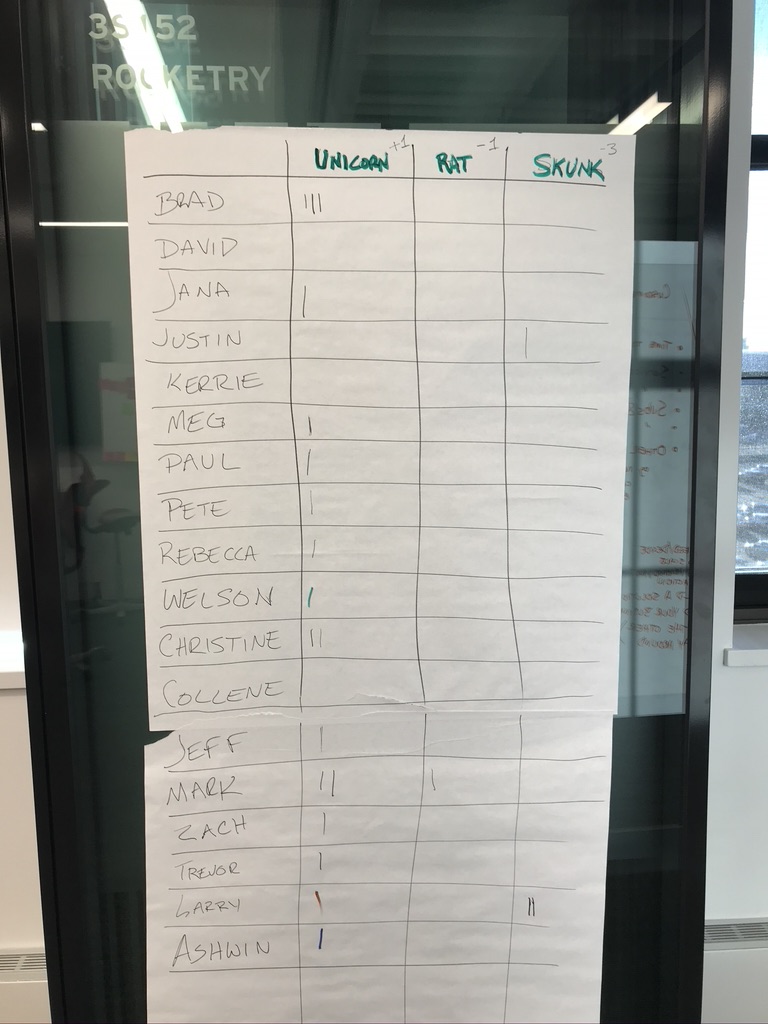 3S 152
ROCKETRY
UNICORN +1 RAT -1 SKUNK -3
BRAD |||
DAVID
JANA |
JUSTIN |
KERRIE
MEG |
PAUL |
PETE |
REBECCA |
WELSON |
CHRISTINE ||
COLLENE
JEFF |
MARK || |
ZACH |
TREVOR |
LARRY | ||
ASHWIN |